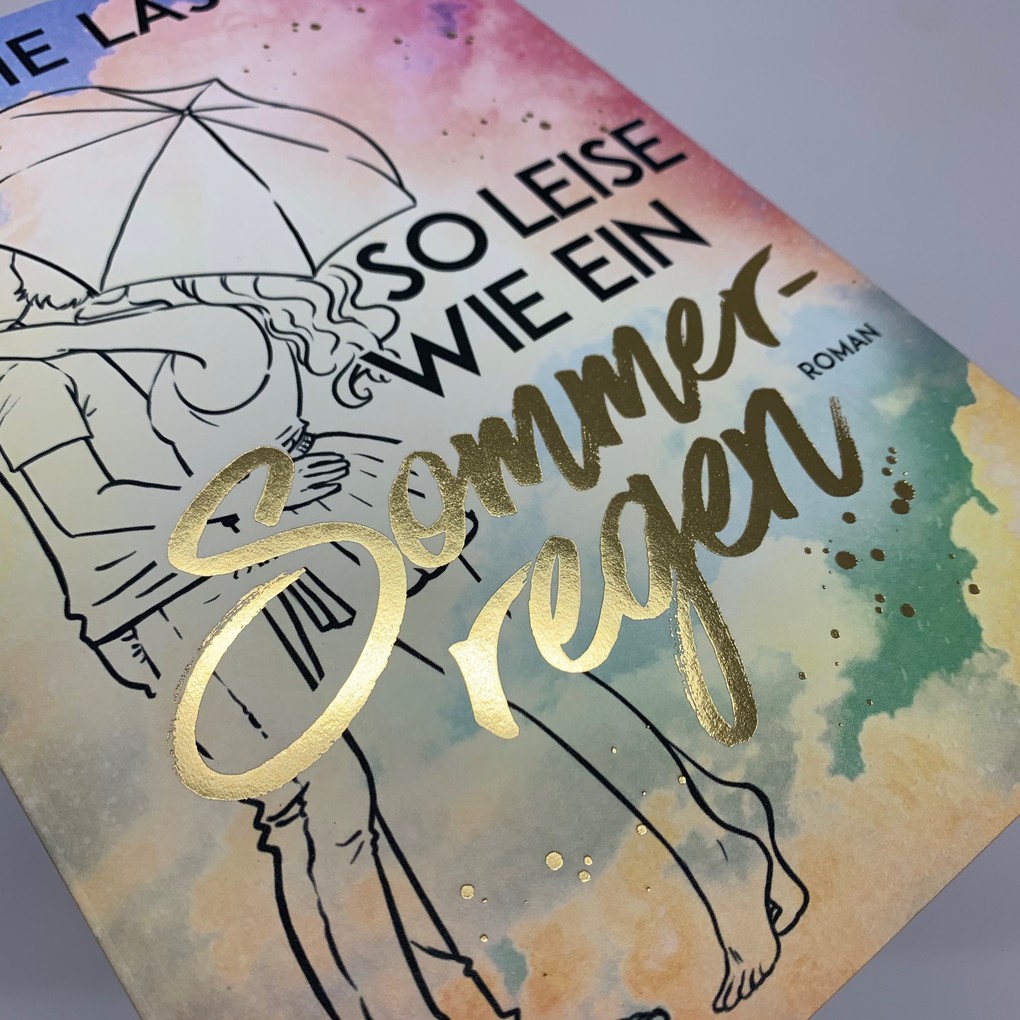 SO LEISE
WIE EIN
Sommer-
regen
ROMAN